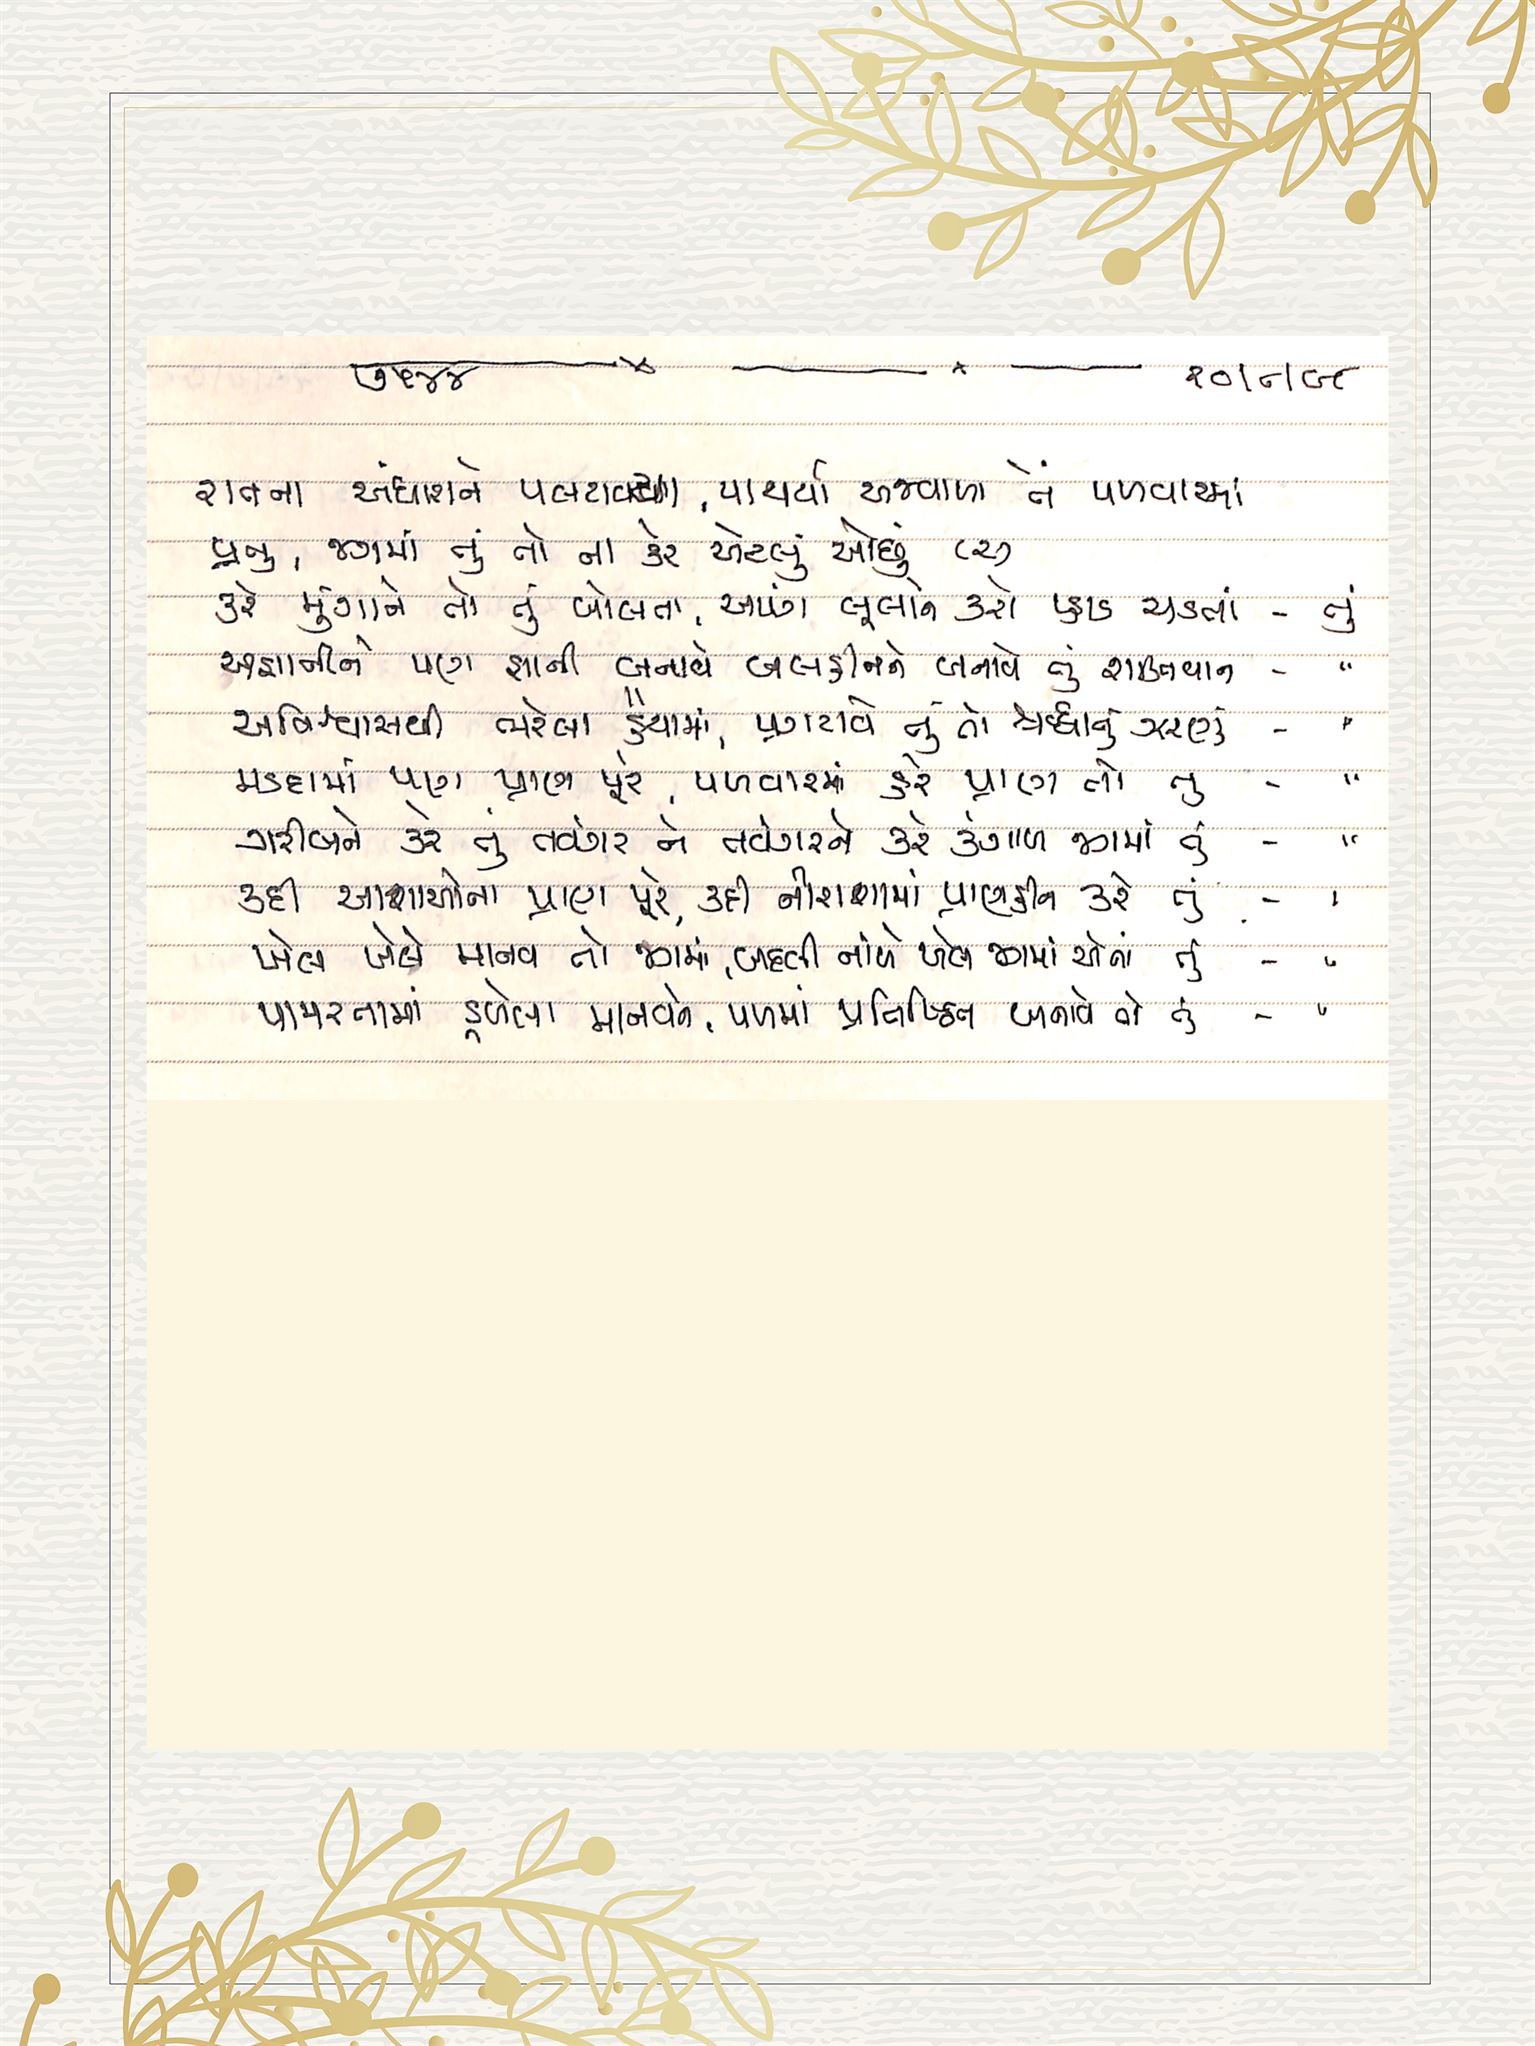 ૭૬૪૪ ૨૦/૮/૯૮
રાતના અંધારાને પલટાવ્યા, પાથર્યા અજવાળા તેં પળવારમાં
પ્રભુ, જગમાં તું તો ના કરે એટલું ઓછું (૨)
કરે મુંગાને તો તું બોલતા, અપંગ લૂલાને કરો પ્હાડ ચડતાં - તું
અજ્ઞાનીને પણ જ્ઞાની બનાવે બલહીનને બનાવે તું શક્તિવાન - "
અવિશ્વાસથી ભરેલા હૈયામાં, પ્રગટાવે તું તો શ્રદ્ધાનું ઝરણું - "
મડદામાં પણ પ્રાણ પૂરે, પળવારમાં હરે પ્રાણ તો તુ - "
ગરીબને કરે તું તવંગર ને તવંગરને કરે કંગાળ જગમાં તું - "
કદી આશાઓના પ્રાણ પૂરે, કદી નીરાશામાં પ્રાણહીન કરે તું - "
ખેલ ખેલે માનવ તો જગમાં, બદલી નાંખે ખેલ જગમાં એનાં તું - "
પામરતામાં ડૂબેલા માનવને, પળમાં પ્રતિષ્ઠિત બનાવે તો તું - "